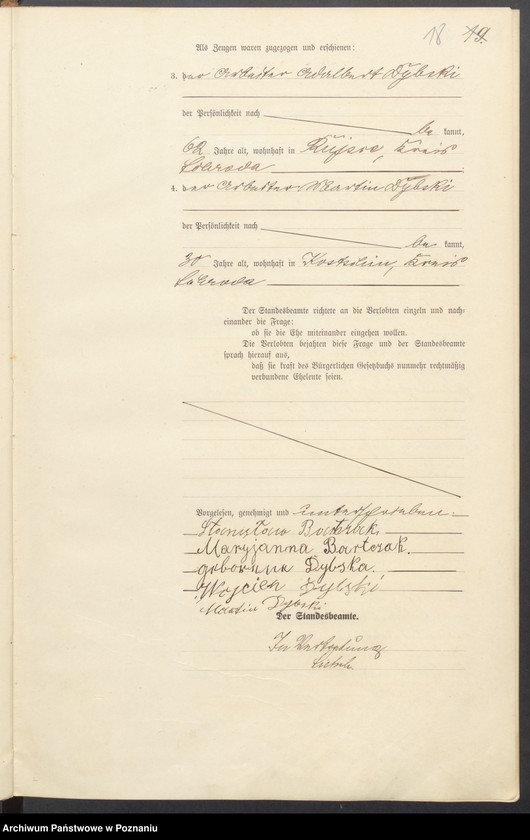 18 19.
Als Zeugen waren zugezogen und erschienen:
3. der Arbeiter Adalbert Dybski
der Persönlichkeit nach
be kannt,
62 Jahre alt, wohnhaft in Kreis
Schroda
4. der Arbeiter Martin Dybski
der Persönlichkeit nach
be kannt,
30 Jahre alt, wohnhaft in Kostschin, Kreis
Schroda
Der Standesbeamte richtete an die Verlobten einzeln und nach-
einander die Frage:
ob sie die Ehe miteinander eingehen wollen.
Die Verlobten bejahten diese Frage und der Standesbeamte
sprach hierauf aus,
daß sie kraft des Bürgerlichen Gesetzbuchs nunmehr rechtmäßig
verbundene Eheleute seien.
Vorgelesen, genehmigt und unterschrieben
Stanysław Bartczak.
Maryjanna Bartczak.
geborene Dybska.
Wojciech Dybski
Martin Dybski
Der Standesbeamte.
In Vertretung
Archiwum Państwowe w Poznaniu